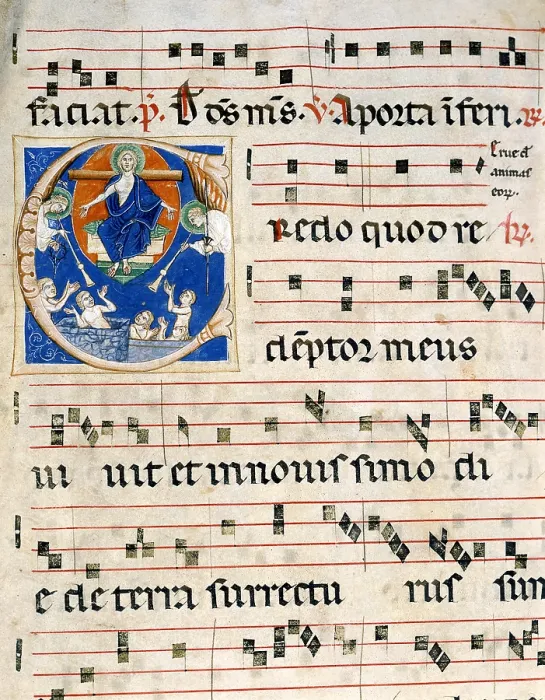 faciat. p̄. D os̄ nīs. v. A porta īferi. R.
Erue d̄
animas
eoꝝ.
Redo quod re R.
dēptor meus
ui uit et in nouissimo di
e de terra surrectu rus sum